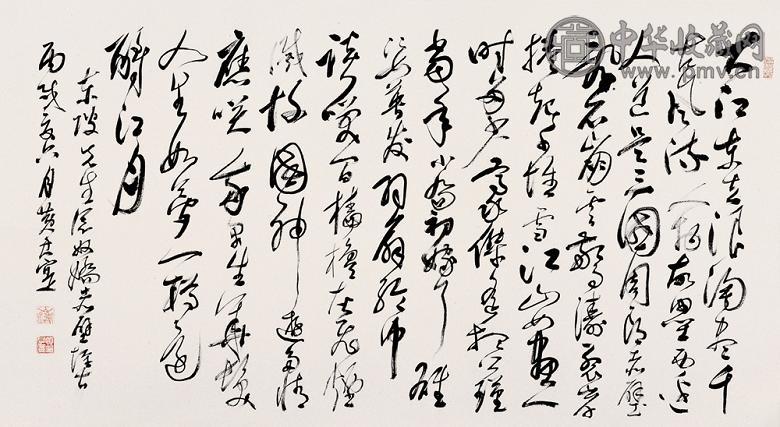 大江东去浪淘尽千
古风流人物故垒西边
人道是三國周郎赤壁
乱石崩云惊涛裂岸
捲起千堆雪江山如画一
时多少豪傑遥想公瑾
当年小喬初嫁了雄
姿英发羽扇纶巾
谈笑间樯橹灰飞烟
滅故國神游多情
應笑我早生華髮
人生如梦一樽还
酹江月
东坡先生念奴嬌赤壁怀古
丙戌夏六月黄君寔
中华收藏网
www.pmv.cn